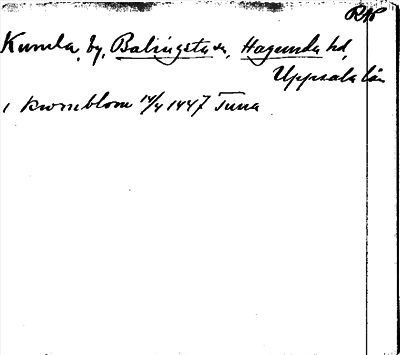 RAP
Kumla, by, Balingsta sn, Hagunda hd,
Uppsala län
i kwrnblom 14/4 1447 Tuna